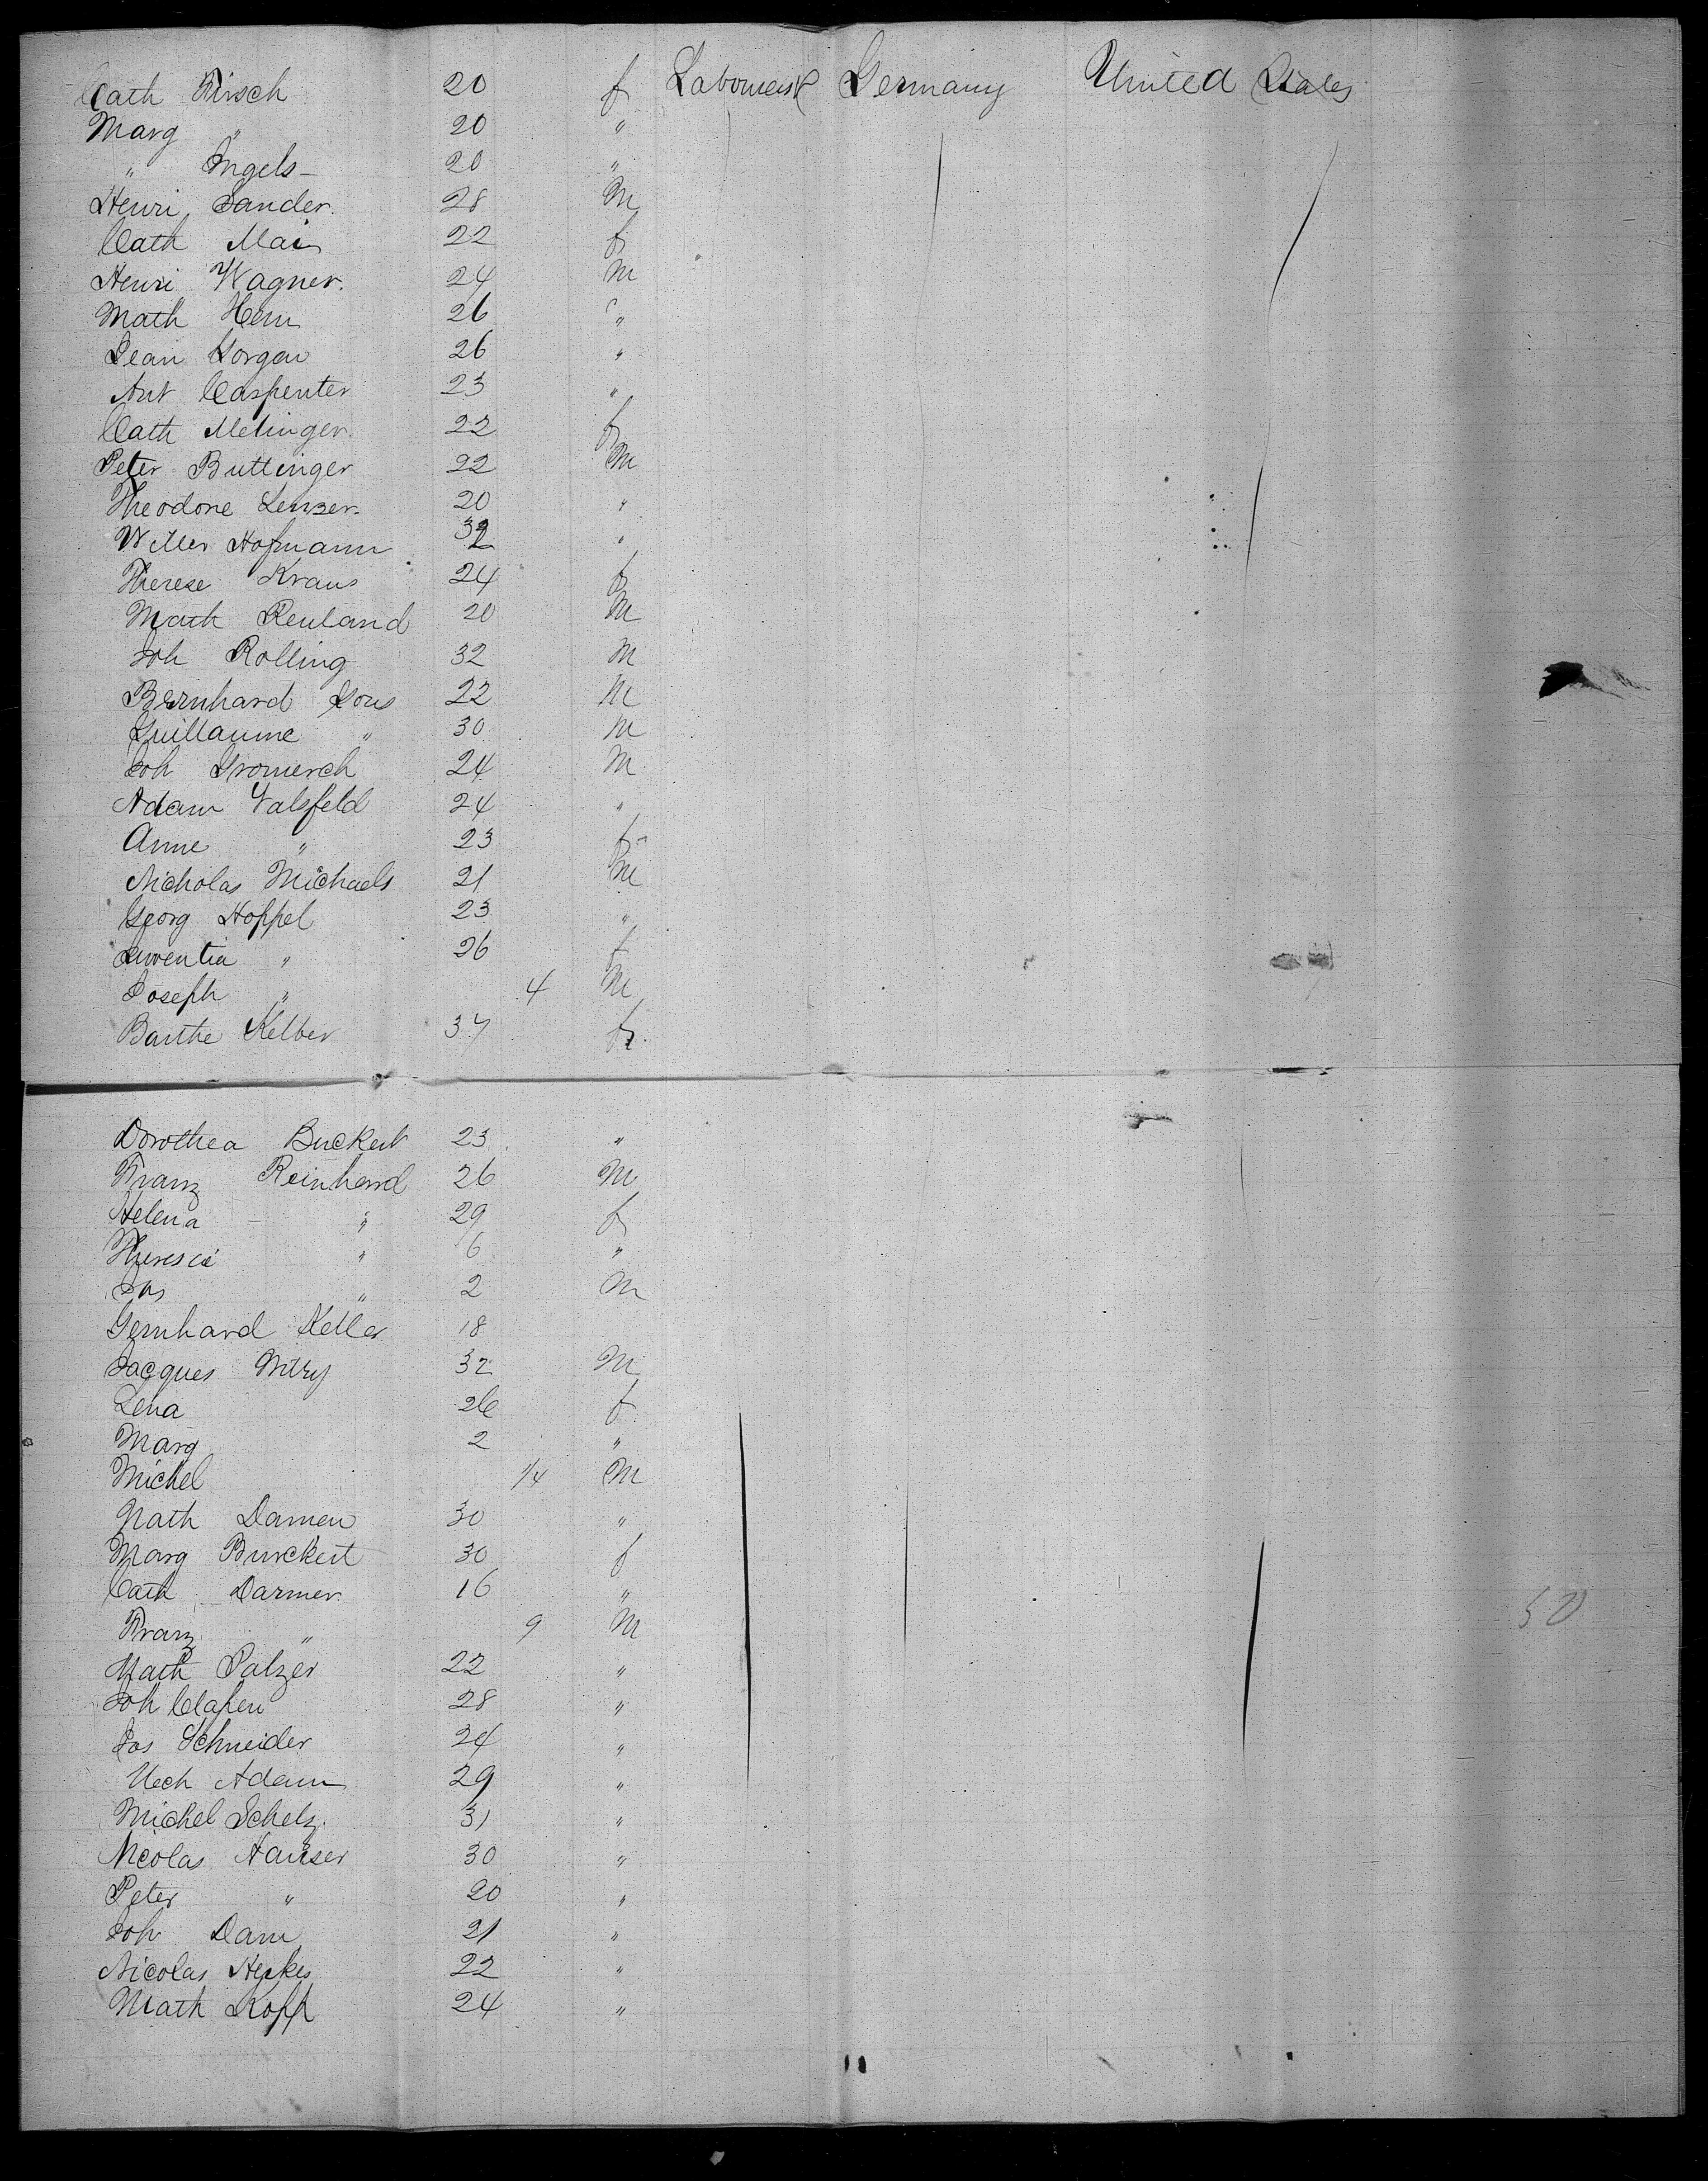 Cath Hirsch 20 f Labourers Germany United States
Marg " 20 "
" Engels 20 "
Henri Sander. 28 M
Cath Mais 22 f
Henri Wagner. 24 M
Math Hein 26 "
Jean Gorgen 26 "
Ant Carpenter 23 "
Cath Metinger. 22 f
Peter Buttinger 22 M
Theodore Lenser. 20 "
Hofmann 32 "
Therese Kraus 24 f
Math Reuland 20 M
Joh Rolling 32 M
Bernhard Gous 22 M
Guillaume " 30 M
Joh Gromerch 24 M
Adam Valsfeld 24 "
Anne " 23 f
Nicholas Michaels 21 M
Georg Hoppel 23 "
" 26 f
Joseph " 4 M
Barthe Kelber 37 f.
Dorothea Buckert 23 "
Franz Reinhard 26 M
Helena " 29 f
Theresia " 6 "
Jos " 2 M
Gernhard Keller 18
Jacques Witry 32 M
Lena 26 f
Marg 2 "
Michel 1/4 M
Math Damen 30 "
Marg Burckert 30 f
Cath Darmer. 16 "
Franz " 9 M
Math Palzer 22 "
Joh Clapen 28 "
Jos Schneider 24 "
Adam 29 "
Michel Schelz. 31 "
Nicolas Hauser 30 "
Peter " 20 "
Joh Dam 21 "
Nicolas Herkes 22 "
Math Kopp 24 "
50